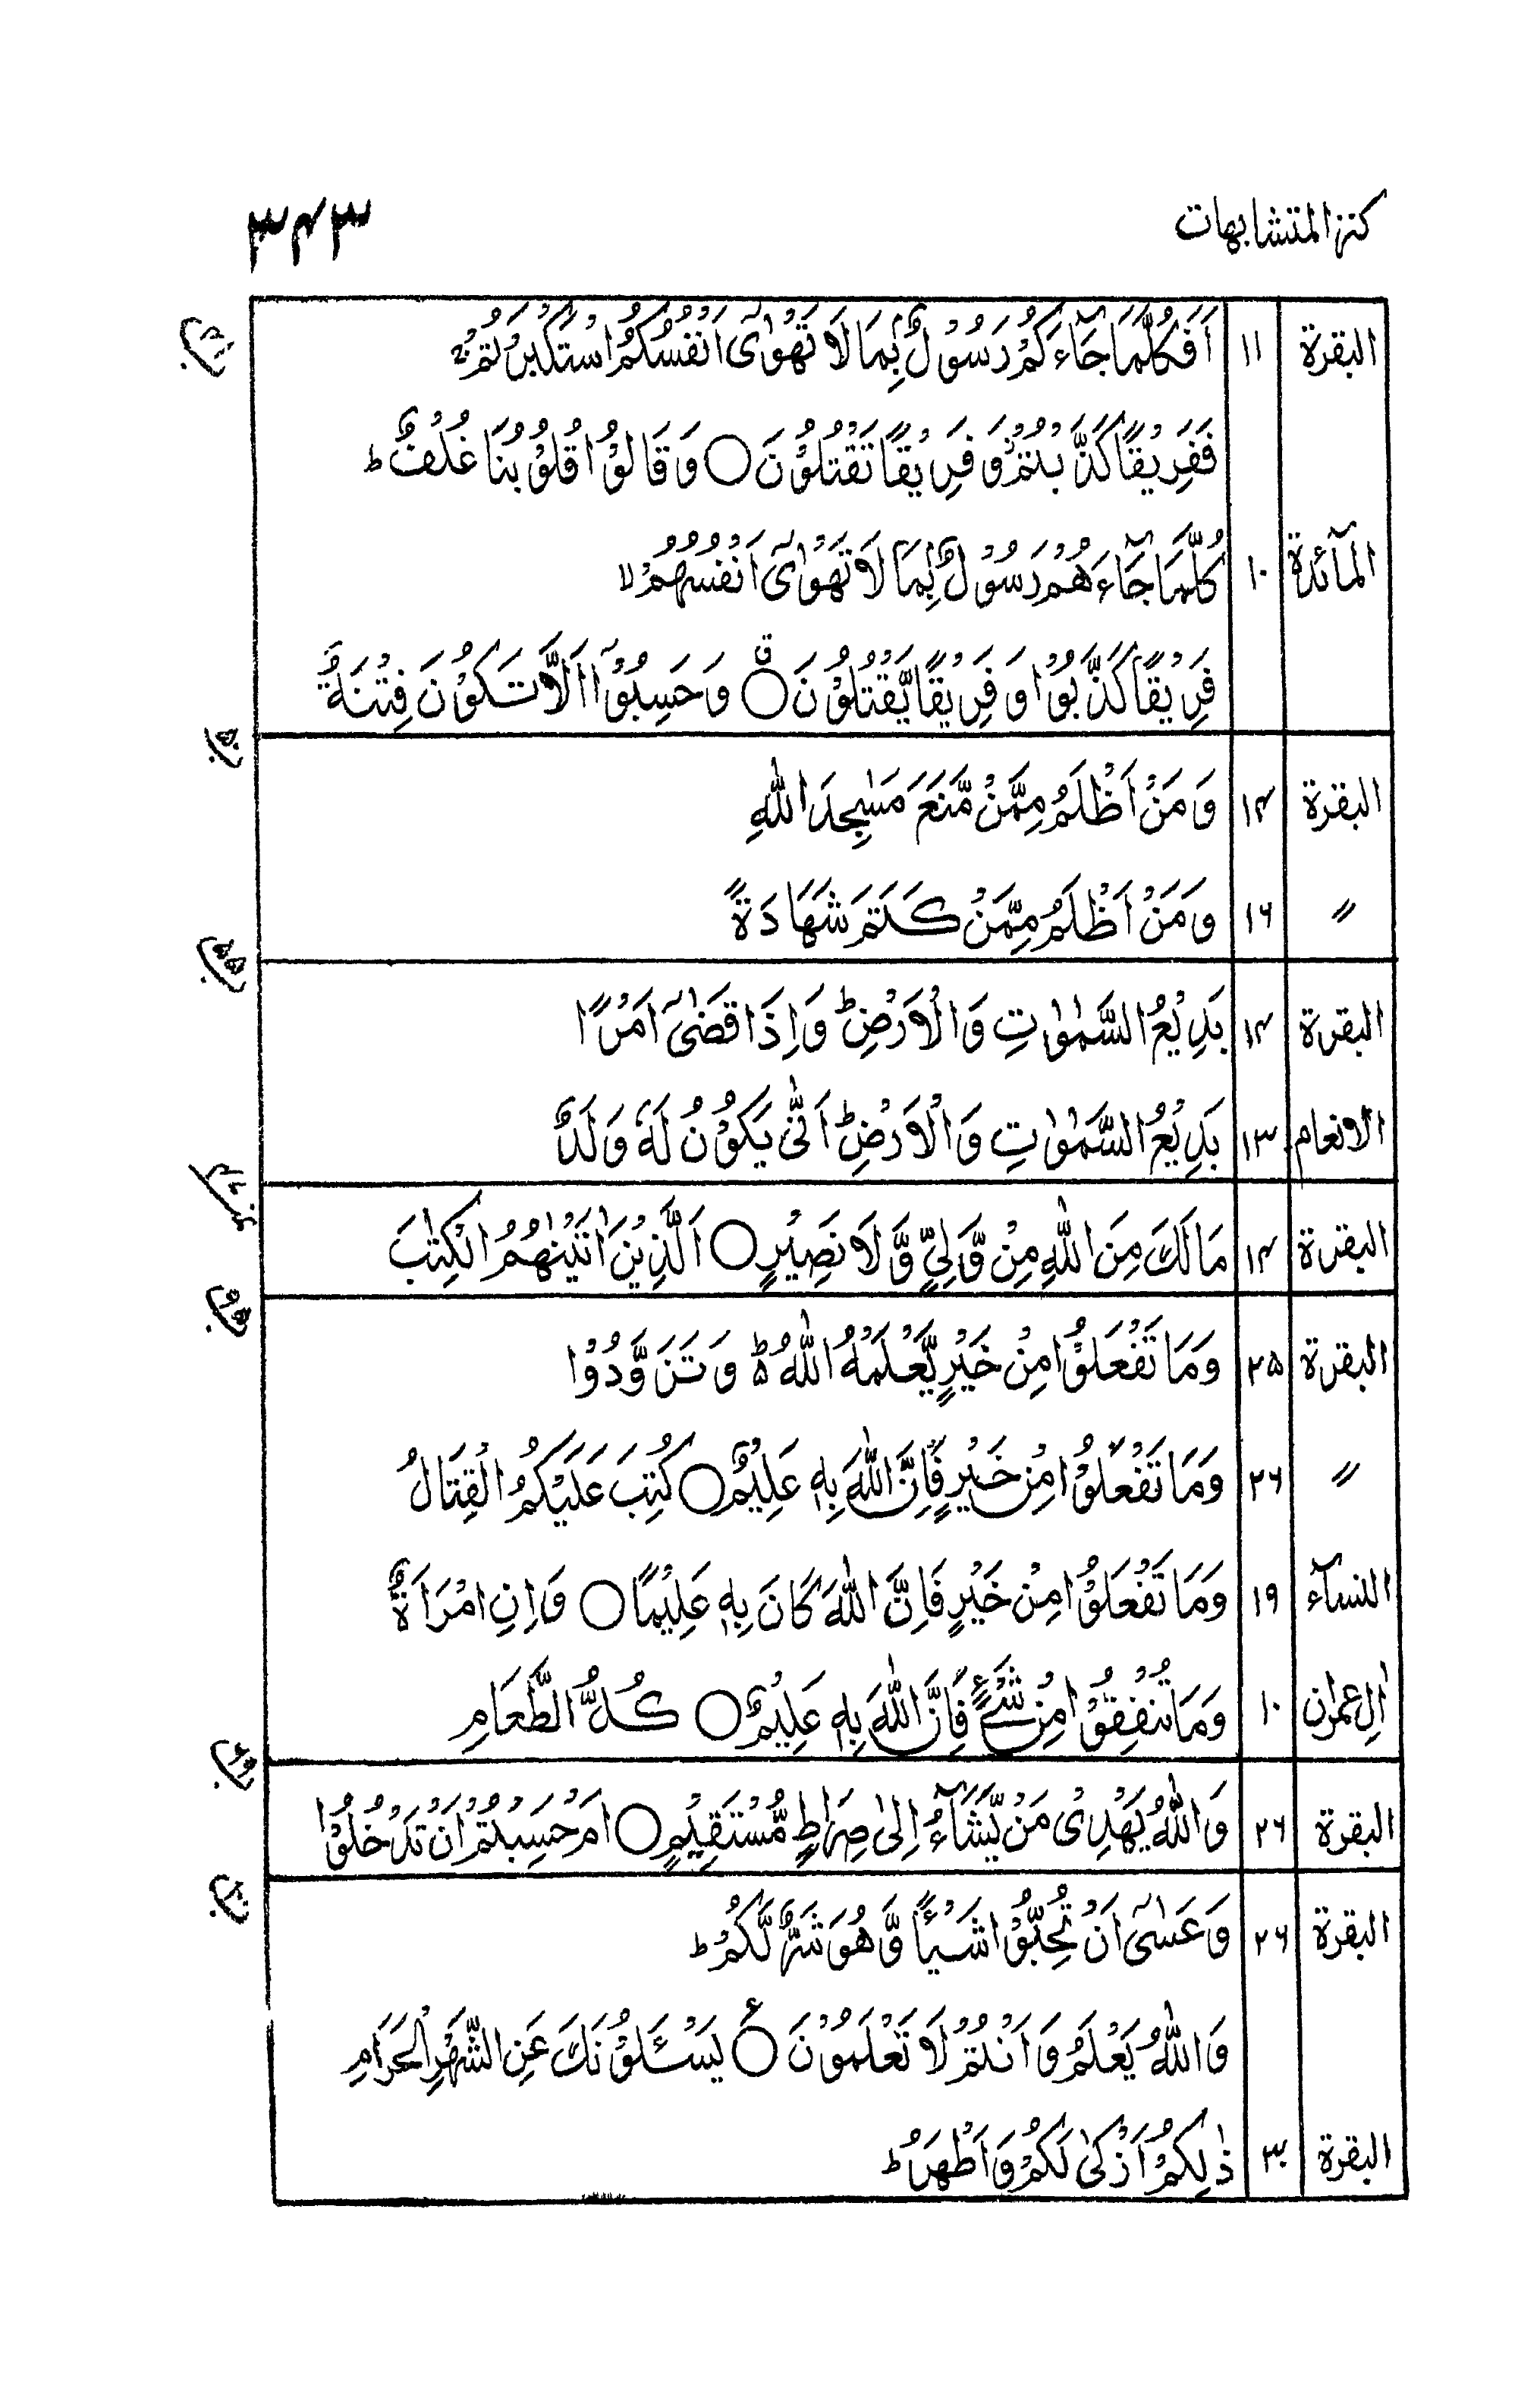 كنز المتشابهات ۳۴۳
البقرة ۱۱ اَفَكُلَّمَا جَآءَكُمْ رَسُوْلٌۢ بِمَا لَا تَهْوٰٓى اَنْفُسُكُمُ اسْتَكْبَرْتُمْ ۚ
فَفَرِيْقًا كَذَّبْتُمْ ؗ وَ فَرِيْقًا تَقْتُلُوْنَ ○ وَ قَالُوْا قُلُوْبُنَا غُلْفٌ ؕ
المآئدة ۱۰ كُلَّمَا جَآءَهُمْ رَسُوْلٌۢ بِمَا لَا تَهْوٰٓى اَنْفُسُهُمْ ۙ
فَرِيْقًا كَذَّبُوْا وَ فَرِيْقًا يَّقْتُلُوْنَ ○ ۗ وَ حَسِبُوْٓا اَلَّا تَكُوْنَ فِتْنَةٌ
البقرة ۱۴ وَ مَنْ اَظْلَمُ مِمَّنْ مَّنَعَ مَسٰجِدَ اللّٰهِ
〃 ۱۶ وَ مَنْ اَظْلَمُ مِمَّنْ كَتَمَ شَهَادَةً
البقرة ۱۴ بَدِيْعُ السَّمٰوٰتِ وَ الْاَرْضِ ؕ وَ اِذَا قَضٰٓى اَمْرًا
الانعام ۱۳ بَدِيْعُ السَّمٰوٰتِ وَ الْاَرْضِ ؕ اَنّٰى يَكُوْنُ لَهٗ وَلَدٌ
البقرة ۱۴ مَا لَكَ مِنَ اللّٰهِ مِنْ وَّلِيٍّ وَّ لَا نَصِيْرٍ ○ اَلَّذِيْنَ اٰتَيْنٰهُمُ الْكِتٰبَ
البقرة ۲۵ وَ مَا تَفْعَلُوْا مِنْ خَيْرٍ يَّعْلَمْهُ اللّٰهُ ؕ وَ تَزَوَّدُوْا
〃 ۲۶ وَ مَا تَفْعَلُوْا مِنْ خَيْرٍ فَاِنَّ اللّٰهَ بِهٖ عَلِيْمٌ ○ كُتِبَ عَلَيْكُمُ الْقِتَالُ
النسآء ۱۹ وَ مَا تَفْعَلُوْا مِنْ خَيْرٍ فَاِنَّ اللّٰهَ كَانَ بِهٖ عَلِيْمًا ○ وَ اِنِ امْرَاَةٌ
اٰل عمرٰن ۱۰ وَ مَا تُنْفِقُوْا مِنْ شَيْءٍ فَاِنَّ اللّٰهَ بِهٖ عَلِيْمٌ ○ كُلُّ الطَّعَامِ
البقرة ۲۶ وَ اللّٰهُ يَهْدِىْ مَنْ يَّشَآءُ اِلٰى صِرَاطٍ مُّسْتَقِيْمٍ ○ اَمْ حَسِبْتُمْ اَنْ تَدْخُلُوْا
البقرة ۲۶ وَ عَسٰٓى اَنْ تُحِبُّوْا شَيْـًٔا وَّ هُوَ شَرٌّ لَّكُمْ ؕ
وَ اللّٰهُ يَعْلَمُ وَ اَنْتُمْ لَا تَعْلَمُوْنَ ○ ع يَسْـَٔلُوْنَكَ عَنِ الشَّهْرِ الْحَرَامِ
البقرة ۳۰ ذٰلِكُمْ اَزْكٰى لَكُمْ وَ اَطْهَرُ ؕ